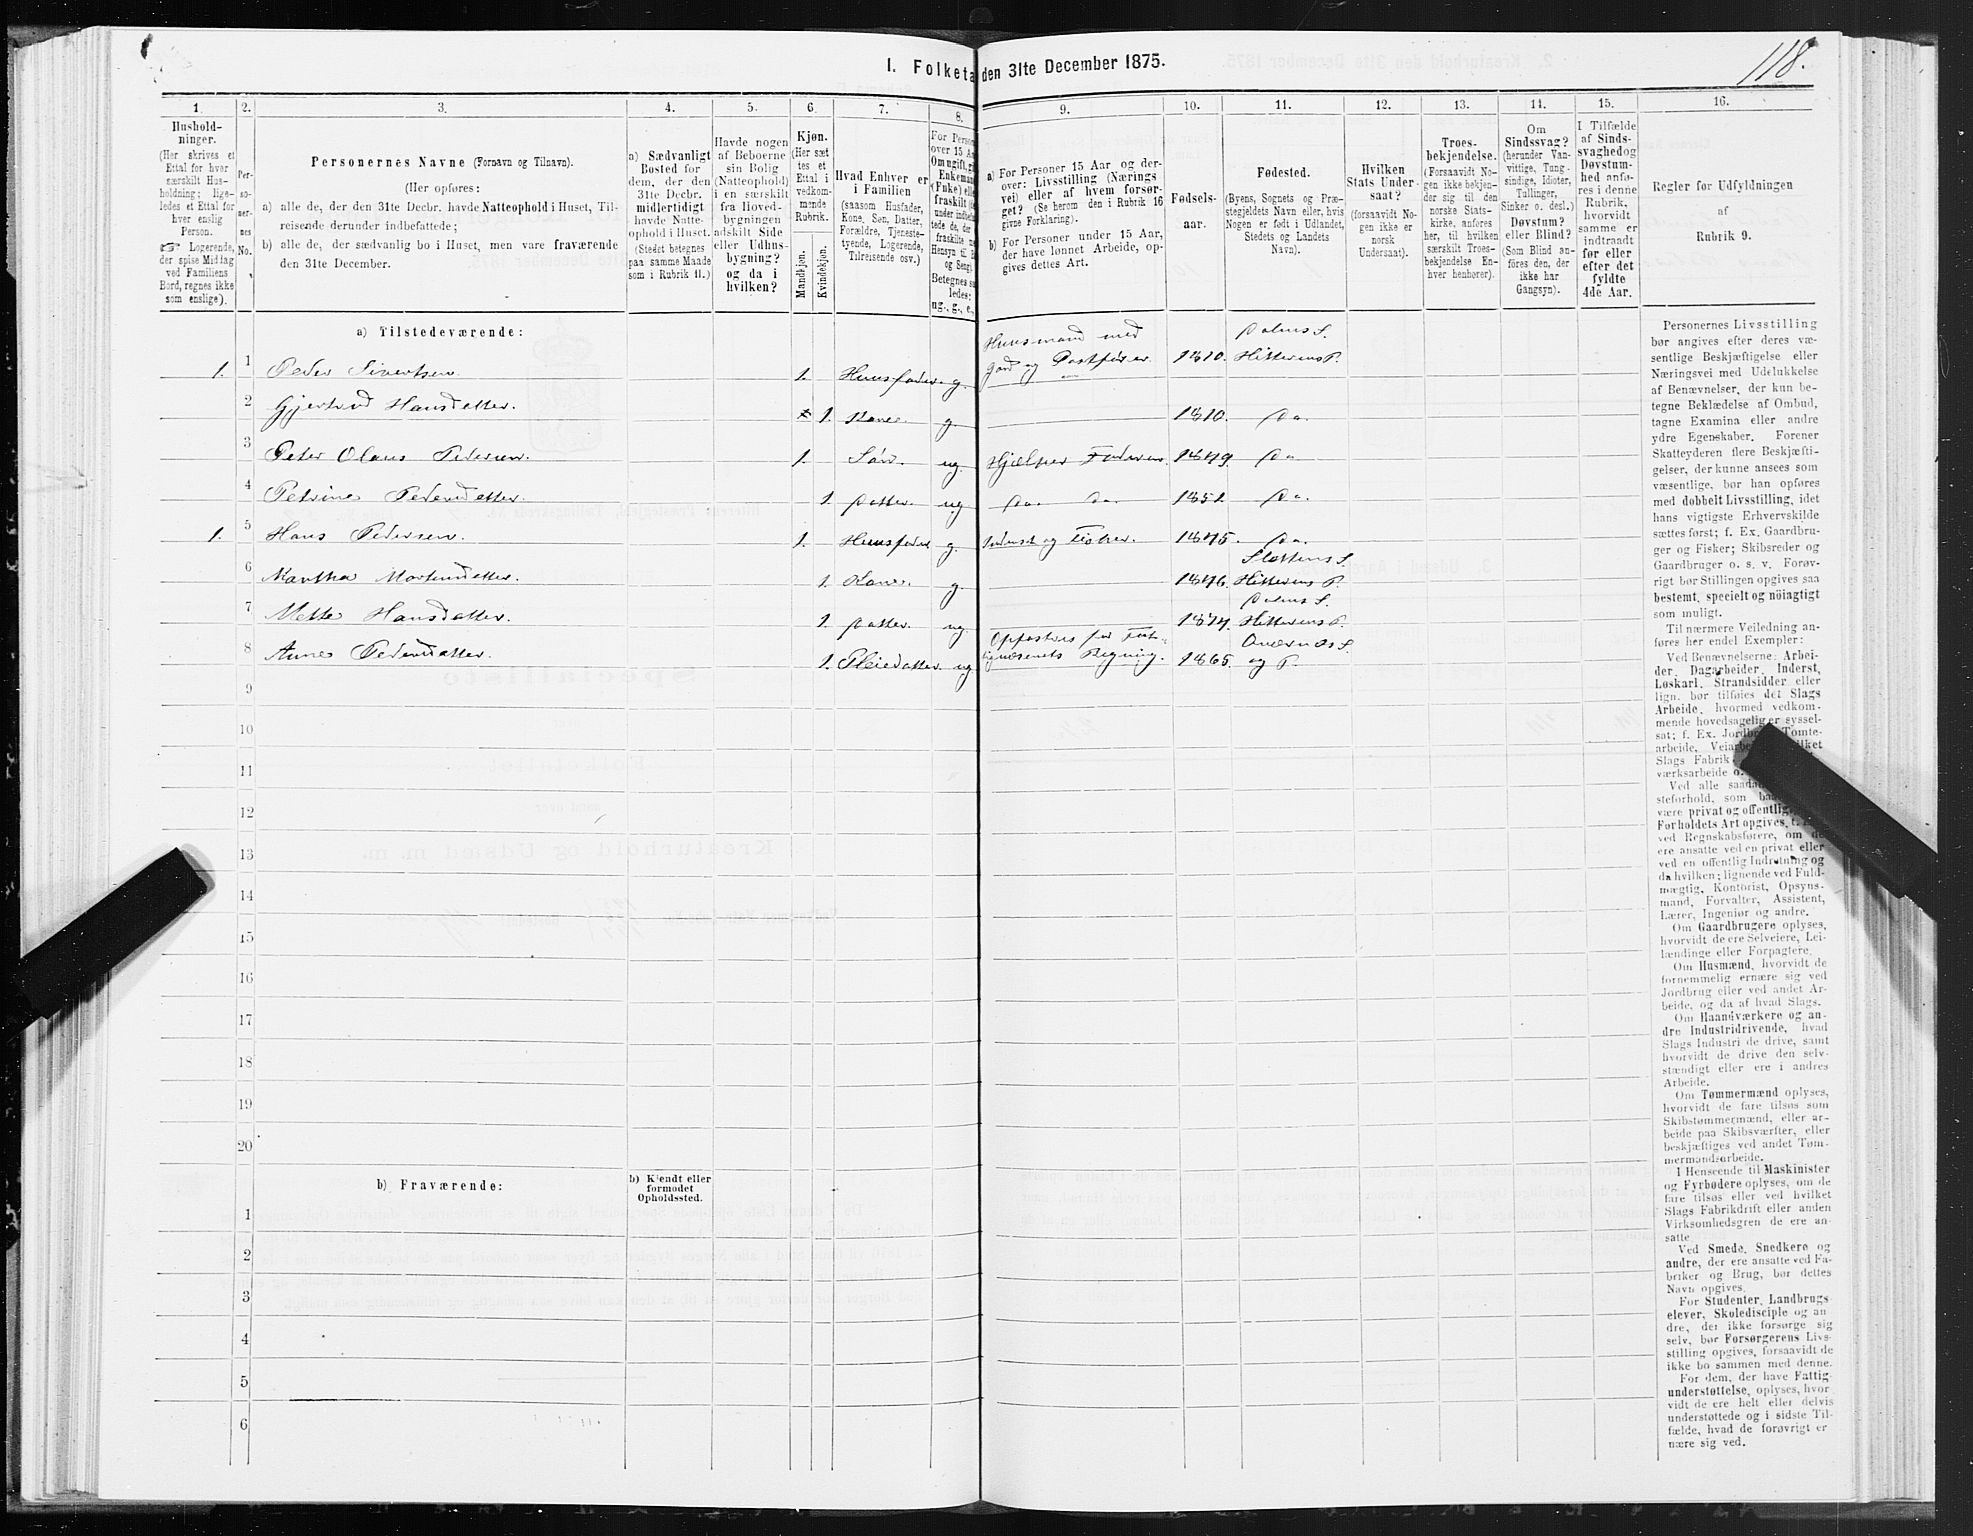 I. Folketa den 31te December 1875.
118.
1. 2. 3. 4. 5. 6. 7. 8. 9. 10. 11. 12. 13. 14. 15. 16.
Hushold-
ninger.
(Her skrives et
Ettal for hver
særskilt Hus-
holdning; lige-
ledes et Ettal for
hver enslig
Person.
☞ Logerende,
der spise Middag
ved Familiens
Bord, regnes ikke
som enslige).
Per-
so-
ner-
nes
No.
Personernes Navne (Fornavn og Tilnavn).
(Her opføres:
a) alle de, der den 31te Decbr. havde Natteophold i Huset, Til-
reisende derunder indbefattede;
b) alle de, der sædvanlig bo i Huset, men vare fraværende
den 31te December.
a) Sædvanligt
Bosted for
dem, der den
31te Decbr.
midlertidigt
havde Natte-
ophold i Huset.
(Stedet betegnes
paa samme Maade
som i Rubrik 11.)
Havde nogen
af Beboerne
sin Bolig
(Natteophold)
i en særskilt
fra Hoved-
bygningen
adskilt Side
eller Udhus-
bygning?
og da i
hvilken?
Kjøn.
(Her sæt
tes et
Ettal i
vedkom-
mende
Rubrik.
Mandkjøn.
Kvindekjøn.
Hvad Enhver er
i Familien
(saasom Husfader,
Kone, Søn, Datter,
Forældre, Tjeneste-
tyende, Logerende,
Tilreisende osv.)
For Person
over 15 Aa
Om ugift, gi
Enkeman
(Fnke) elle
fraskilt
under indbefa
tede de, der
fraskilte
Hensyn til B
og Seng).
Betegnes sa
ledes:
ug., g., e.,
a) For Personer 15 Aar og der-
over: Livsstilling (Nærings
vei) eller af hvem forsør-
get? (Se herom den i Rubrik 16
givne Forklaring).
b) For Personer under 15 Aar,
der have lønnet Arbeide, op-
gives dettes Art.
Fødsels-
aar.
Fødested.
(Byens, Sognets og Præ-
stegjeldets Navn eller, hvis
Nogen er født i Udlandet,
Stedets og Landets
Navn).
Hvilken
Stats Under-
saat?
(forsaavidt No-
gen ikke er
norsk
Undersaat).
Troes-
bekjendelse.
(Forsaavidt No-
gen ikke bekjen-
der sig til den
norske Stats-
kirke, anføres
her, til hvilken
særskilt Troes-
bekjendelse En-
hver henhører).
Om
Sindssvag?
(herunder Van-
vittige, Tung-
sindige, Idioter,
Tullinger,
Sinker o. desl.)
Døvstum?
eller Blind?
(Som Blind an-
føres den, der
ikke har
Gangsyn).
I Tilfælde
af Sinds-
svaghed og
Døvstum-
hed anfø-
res i denne
Rubrik,
hvorvidt
samme er
indtraadt
før eller
efter det
fyldte
4de Aar.
Regler før Udfyldningen
af
Rubrik 9.
a) Tilstedeværende:
1. 1 Peder Sivertsen. 1. Huusfader. g. Huusmand med Jord og Postfører 1810. Dolms S. Hitterens P.
2 Gjertrud Hansdatter. 1. Kone. g. 1810. Do.
3 Peter Olaus Pedersen. 1. Søn. ug. Hjælper Faderen. 1849. Do
4 Petrine Pedersdatter. 1. Datter ug Do. Do. 1851. Do.
1. 5 Hans Pedersen. 1. Huusfader g. Inderst og Fisker. 1845. Do.
6 Martha Mortensdatter. 1. Kone. g. 1846. Slottens S. Hitterens P.
7 Mette Hansdatter. 1. Datter. ug. 1874. Dolms S. Hitterens P.
8 Anne Pedersdatter. 1. Pleiedatter ug. Opfostres for Fat- tigvæsenets Regning. 1865. S. og P.
9
10
11
12
13
14
15
16
17
18
19
20
b) Fraværende:
b) Kjendt eller
formodet
Opholdssted.
1
2
3
4
5
6
Personernes Livsstilling
bør angives efter deres væ-
sentlige Beskjæftigelse eller
Næringsvei med Udelukkelse
af Benævnelser, der kun be-
tegne Beklædelse af Ombud,
tagne Examina eller andre
ydre Egenskaber. Forener
Skatteyderen flere Beskjæfti-
gelser, der kunne ansees som
væsentlige, bør han opføres
med dobbelt Livsstilling, idet
hans vigtigste Erhvervskilde
sættes først; f. Ex. Gaardbru-
ger og Fisker; Skibsreder og
Gaardbruger o. s. v. Forøv-
rigt bør Stillingen opgives saa
bestemt, specielt og nøiagtigt
som muligt.
Til nærmere Veiledning an-
føres her endel Exempler:
Ved Benævnelserne: Arbei-
der, Dagarbeider, Inderst,
Løskarl, Strandsidder eller
lign. bør tilføies det Slags
Arbeide, hvormed vedkom-
mende hovedsagelig er syssel-
sat; f. Ex. Jordbr Tomte-
arbeide, Veiarbe ilket
Slags Fabrik
værksarbeide o.
Ved alle saada
steforhold, som
være privat og offentlig,
Forholdets Art opgives,
ved Regnskabsførere, om de
ere ansatte ved en privat eller
ved en offentlig Indretning og
da hvilken; lignende ved Fuld-
mægtig, Kontorist, Opsyns-
mand, Forvalter, Assistent,
Lærer, Ingeniør og andre.
Om Gaardbrugere oplyses,
hvorvidt de ere Selveiere, Lei-
lændinge eller Forpagtere.
Om Husmænd, hvorvidt de
fornemmelig ernære sig ved
Jordbrug eller ved andet Ar-
beide, og da af hvad Slags.
Om Haandværkere og an-
dre Industridrivende, hvad
Slags Industri de drive, samt
hvorvidt de drive den selv-
stændigt eller ere i andres
Arbeide.
Om Tømmermænd oplyses,
hvorvidt de fare tilsøs som
Skibstømmermænd, eller ar-
beide paa Skibsværfter, eller
beskjæftiges ved andet Tøm-
mermandsarbeide.
I Henseende til Maskinister
og Fyrbødere oplyses, om de
fare tilsøs eller ved hvilket
Slags Fabrikdrift eller anden
Virksomhedsgren de ere an-
satte
Ved Smede, Snedkere og
andre, der ere ansatte ved Fa-
briker og Brug, bør dettes
Navn opgives.
For Studenter, Landbrugs
elever, Skoledisciple og an
dre, der ikke forsørge sig
selv, bør Forsørgerens Livs-
stilling opgives, forsaavidt de
ikke bo sammen med denne.
For dem, der have Fattig-
understøttelse, oplyses, hvor
vidt de ere helt eller delvis
understøttede og i sidste Til-
fælde, hvad de forøvrigt er
nære sig ved.